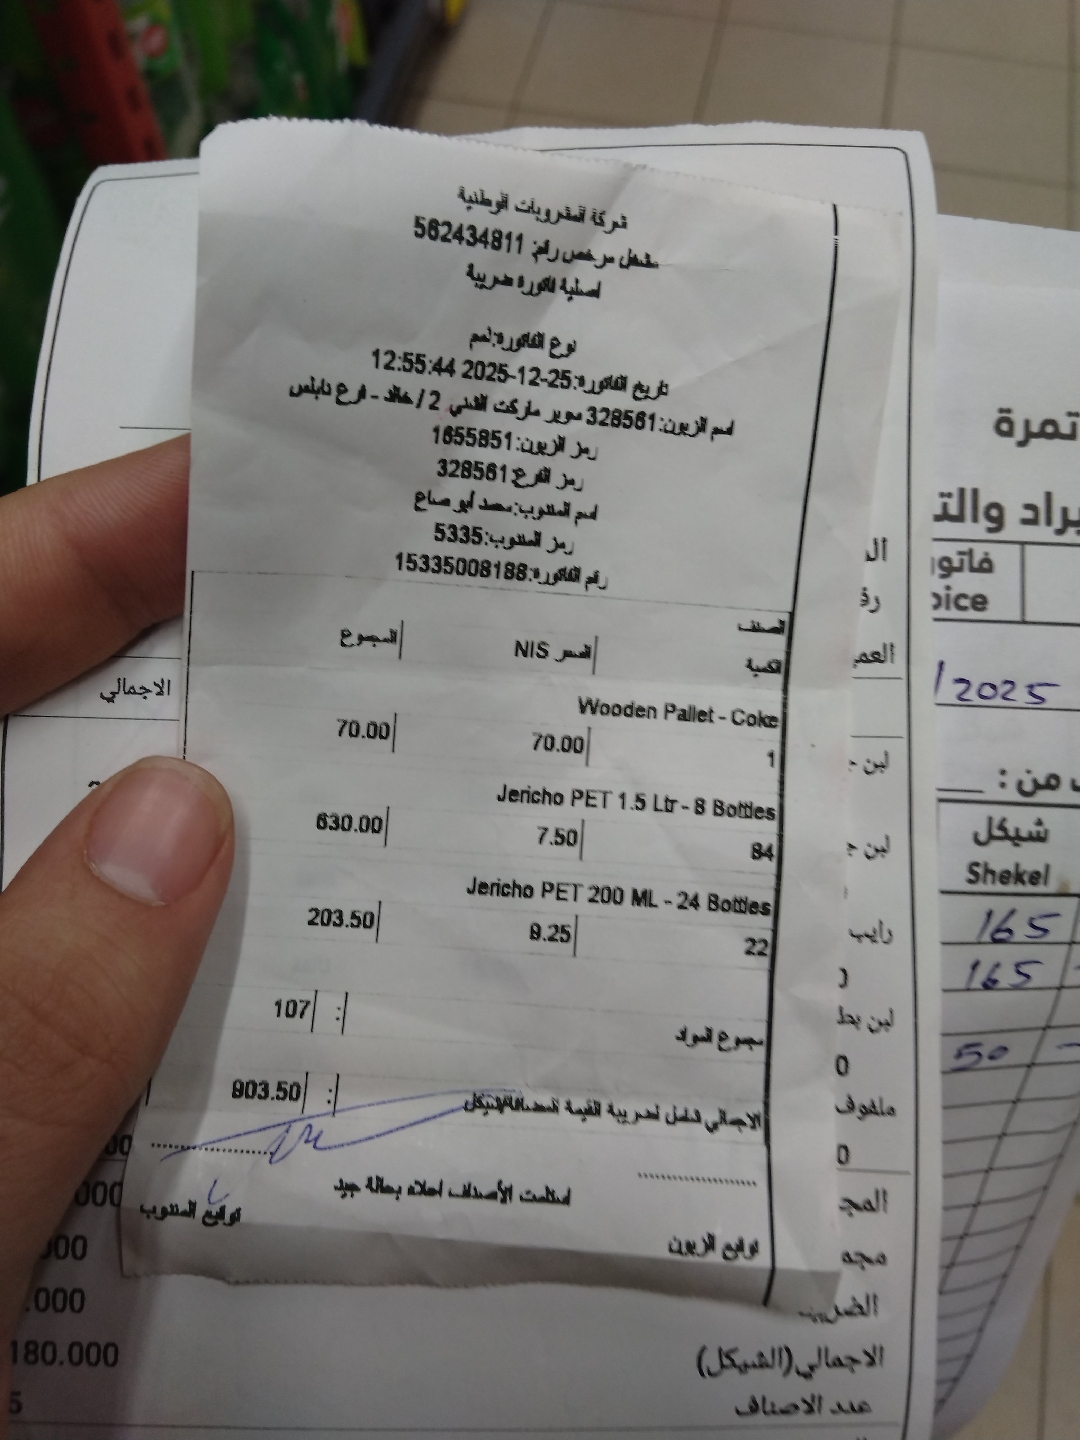 شركة المشروبات الوطنية
مشغل مرخص رقم: 562434811
اصلية فاتورة ضريبة
نوع الفاتورة:ذمم
تاريخ الفاتورة:25-12-2025 12:55:44
اسم الزبون:328561 سوبر ماركت الفني 2 / خالد - فرع نابلس
رمز الزبون:1655851
رمز الفرع:328561
اسم المندوب:محمد أبو صاع
رمز المندوب:5335
رقم الفاتورة:15335008188
الصنف
الكمية | السعر NIS | المجموع
Wooden Pallet - Coke
1 | 70.00 | 70.00
Jericho PET 1.5 Ltr - 8 Bottles
84 | 7.50 | 630.00
Jericho PET 200 ML - 24 Bottles
22 | 9.25 | 203.50
مجموع المواد : 107
الاجمالي شامل لضريبة القيمة المضافة/شيكل : 903.50
استلمت الأصناف اعلاه بحالة جيد
توقيع الزبون
توقيع المندوب
الاجمالي
العم
لبن
لبن
رايب
لبن
0
ملفوف
0
المج
مجم
الاجمالي(الشيكل)
180.000
عدد الاصناف
5
تمرة
فاتو
oice
/2025
من :
شيكل
Shekel
165
165
50